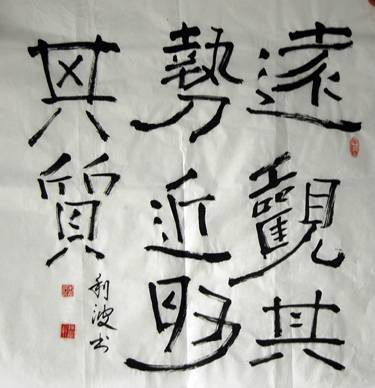 遠觀其
勢近
其質
利波书